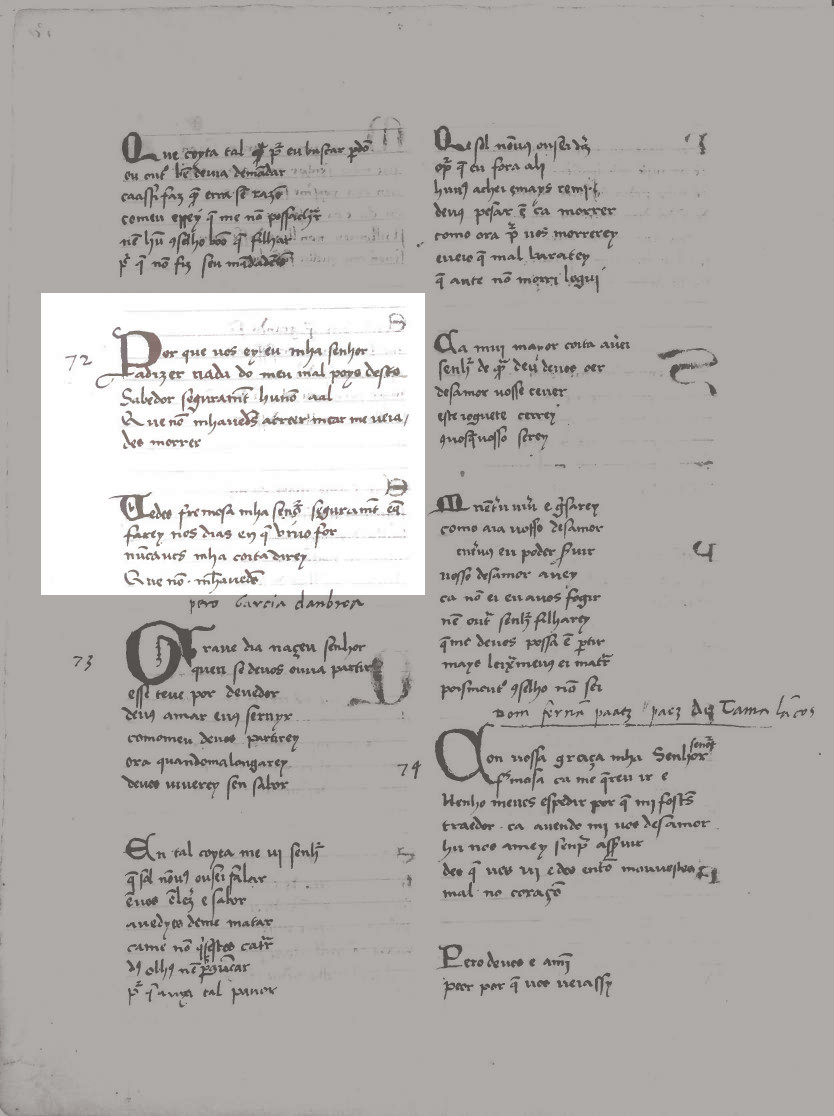 Que coyta tal pª eu buscar pdõ
eu out' bẽ deuia demãdar
caassy faz q̃ erra sẽ razõ
comeu errey q̃ me nõ possachar
nẽ hũ ꝯselho boo q̃ filhar
pr̃ q̃ nõ fiz seu mãdadeu
72 Por que uos ey eu mha senhor
Eadizer nada do meu mal poys desto
Sabedor seguramẽt hunõ aal
Que nõ mhauedes acreer mear me ueia
des morrer
Uedes fremosa mha senhor seguramẽt eq̃
farey nos dias en q̃ viuo for
nũca ues mha coita direy
Que nõ mhauedes
pero Garcia danbroa
73 Graue dia naçeu senhor
quen se deuos ouua partir
esse teue por deuedor
deus amar eus seruyr
comomeu deuos partirey
ora quandomalongarey
deuos uiuerey sen sabor
En tal coyta me ui senhr̃
q̃ sol nõuꝯ ousei falar
euos e sabor
auedyes deme matar
came nõ
dꝯ olhꝯ nẽ
tal pauor
Que sol nõuꝯ ousei
q̃ eu fora ali
huuꝯ achei emays
deuꝯ pesar ẽ ca morrer
como ora pr̃ uos morrerey
eueio q̃ mal baratey
q̃ ante nõ morri logui
Ca mui mayor coita auerei
senhr̃ de deuos oer
desamor uosse ceuer
este roguete cerrey
uosso serey
e g̃sarey
como aia uosso desamor
eu poder seruir
uosso desamor auey
ca nõ ei euauos fogir
nẽ out senhr̃ filharey
q̃me deuos possa ẽ ptir
mays leixemeus ei mat̃r
ꝯselho nõ sei
Dom fernã paaez paez de Tamalãcos
74 Con uossa graça mha Senhor
fremosa ca me q̃reu ir e
Uenho meues espedir por q̃ mi fostes
traedor ca auendo mi uos desamor
hu uos amey senpr̃ asseruir
des q̃ uos ui e des entõ mouuestes
mal no coraçõ
Pero deuos e ami
peer por q̃ uos ueiassy